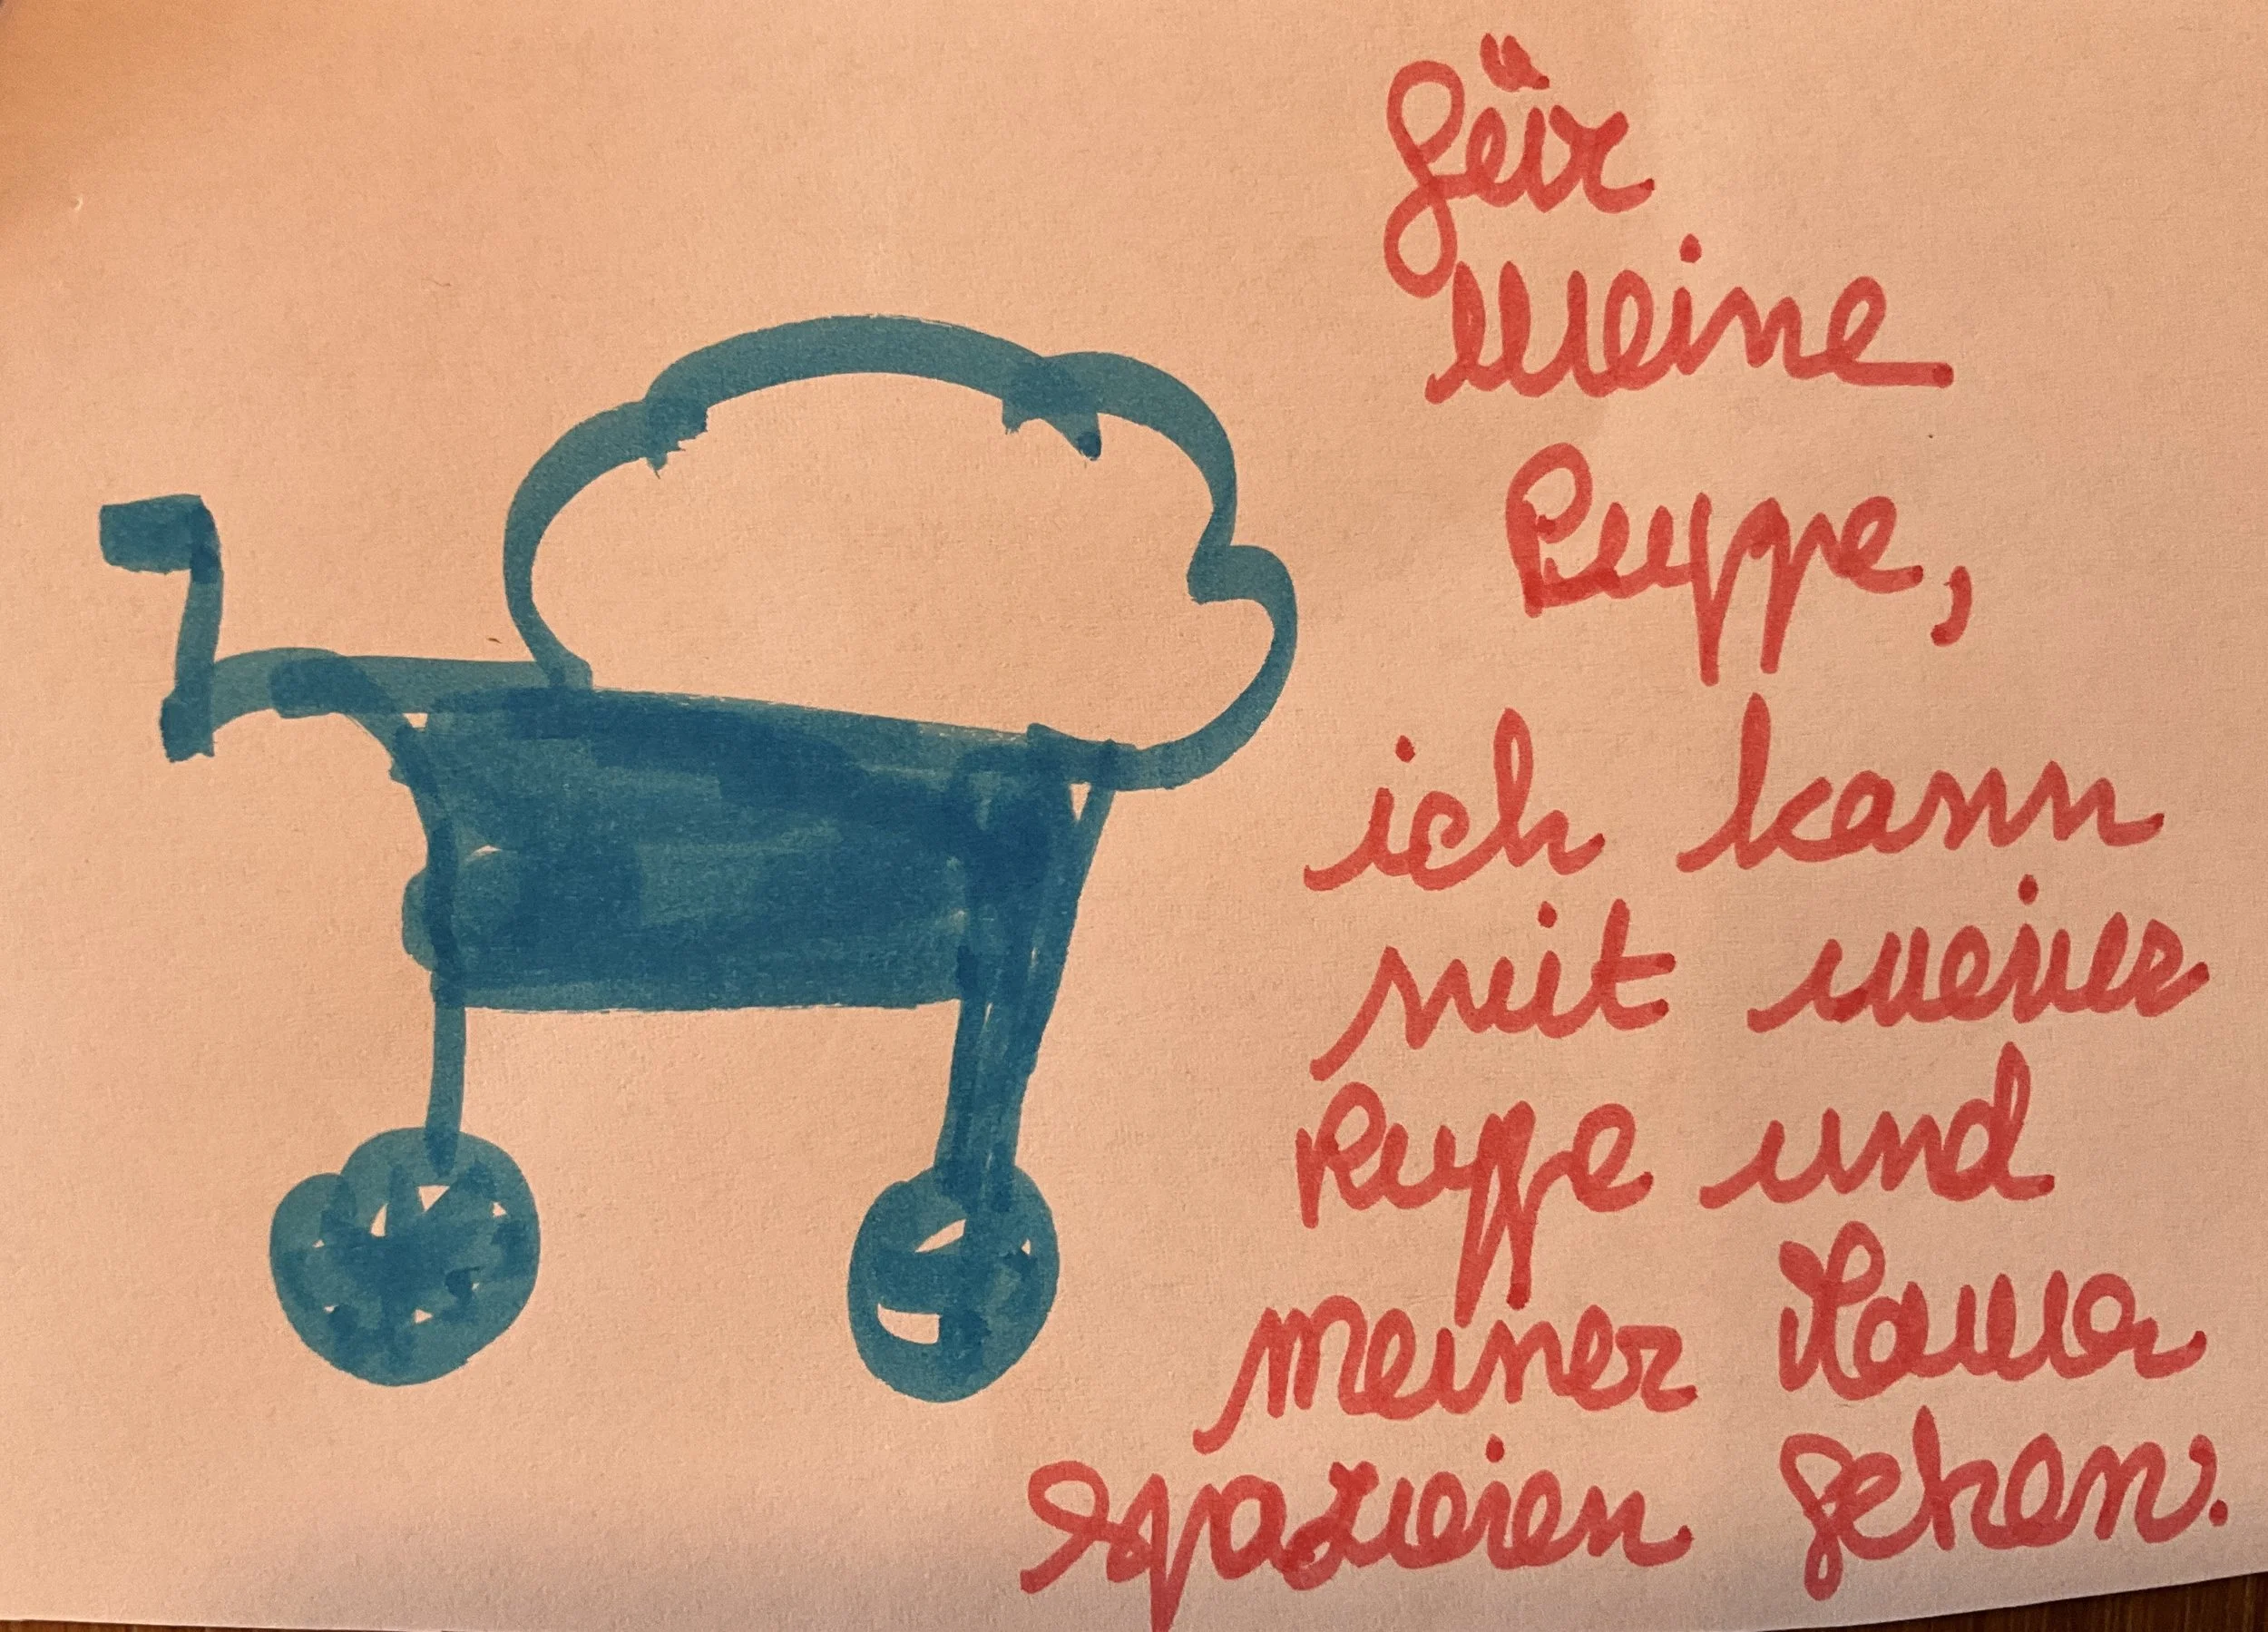 für
meine
Puppe,
ich kann
mit meiner
Puppe und
meiner Mama
spazieren gehen.